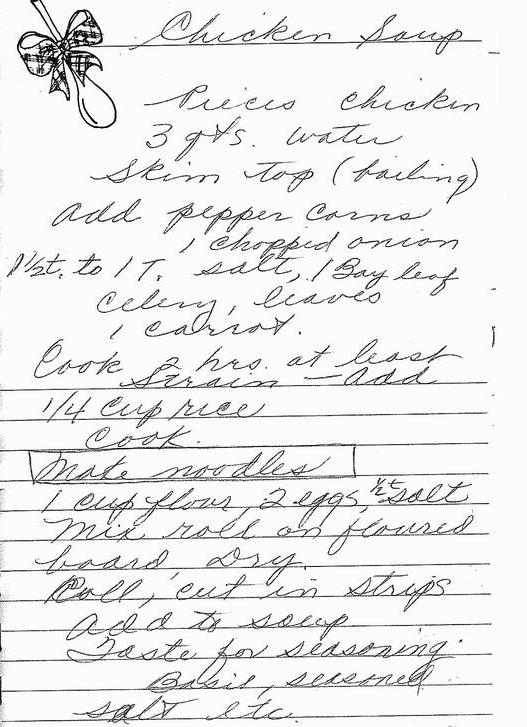 Chicken Soup
Pieces chicken
3 qts. water
Skim top (boiling)
add pepper corns
1 chopped onion
1 1/2 t. to 1 T. salt, 1 Bay leaf
celery, leaves
1 carrot.
Cook 2 hrs. at least
Strain — add
1/4 cup rice
Cook.
Make noodles
1 cup flour, 2 eggs, 1/2 t salt
Mix roll on floured
board, Dry.
Roll, cut in strips
add to soup
Taste for seasoning.
Basil, seasoned
salt etc.